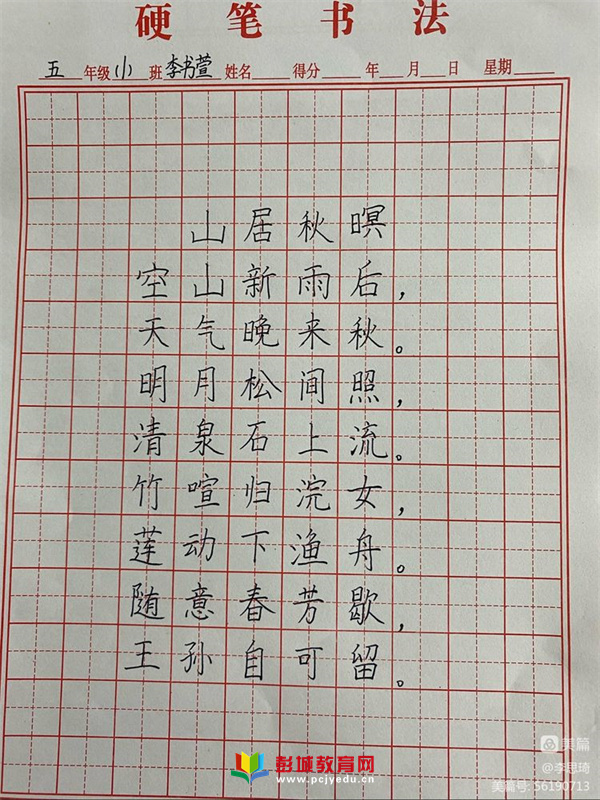 硬笔书法
五年级(1)班李书萱姓名 得分 年 月 日 星期
山居秋暝
空山新雨后，
天气晚来秋。
明月松间照，
清泉石上流。
竹喧归浣女，
莲动下渔舟。
随意春芳歇，
王孙自可留。
美篇
@李思琦
美篇号: 56190713
彭城教育网
www.pcjyedu.cn